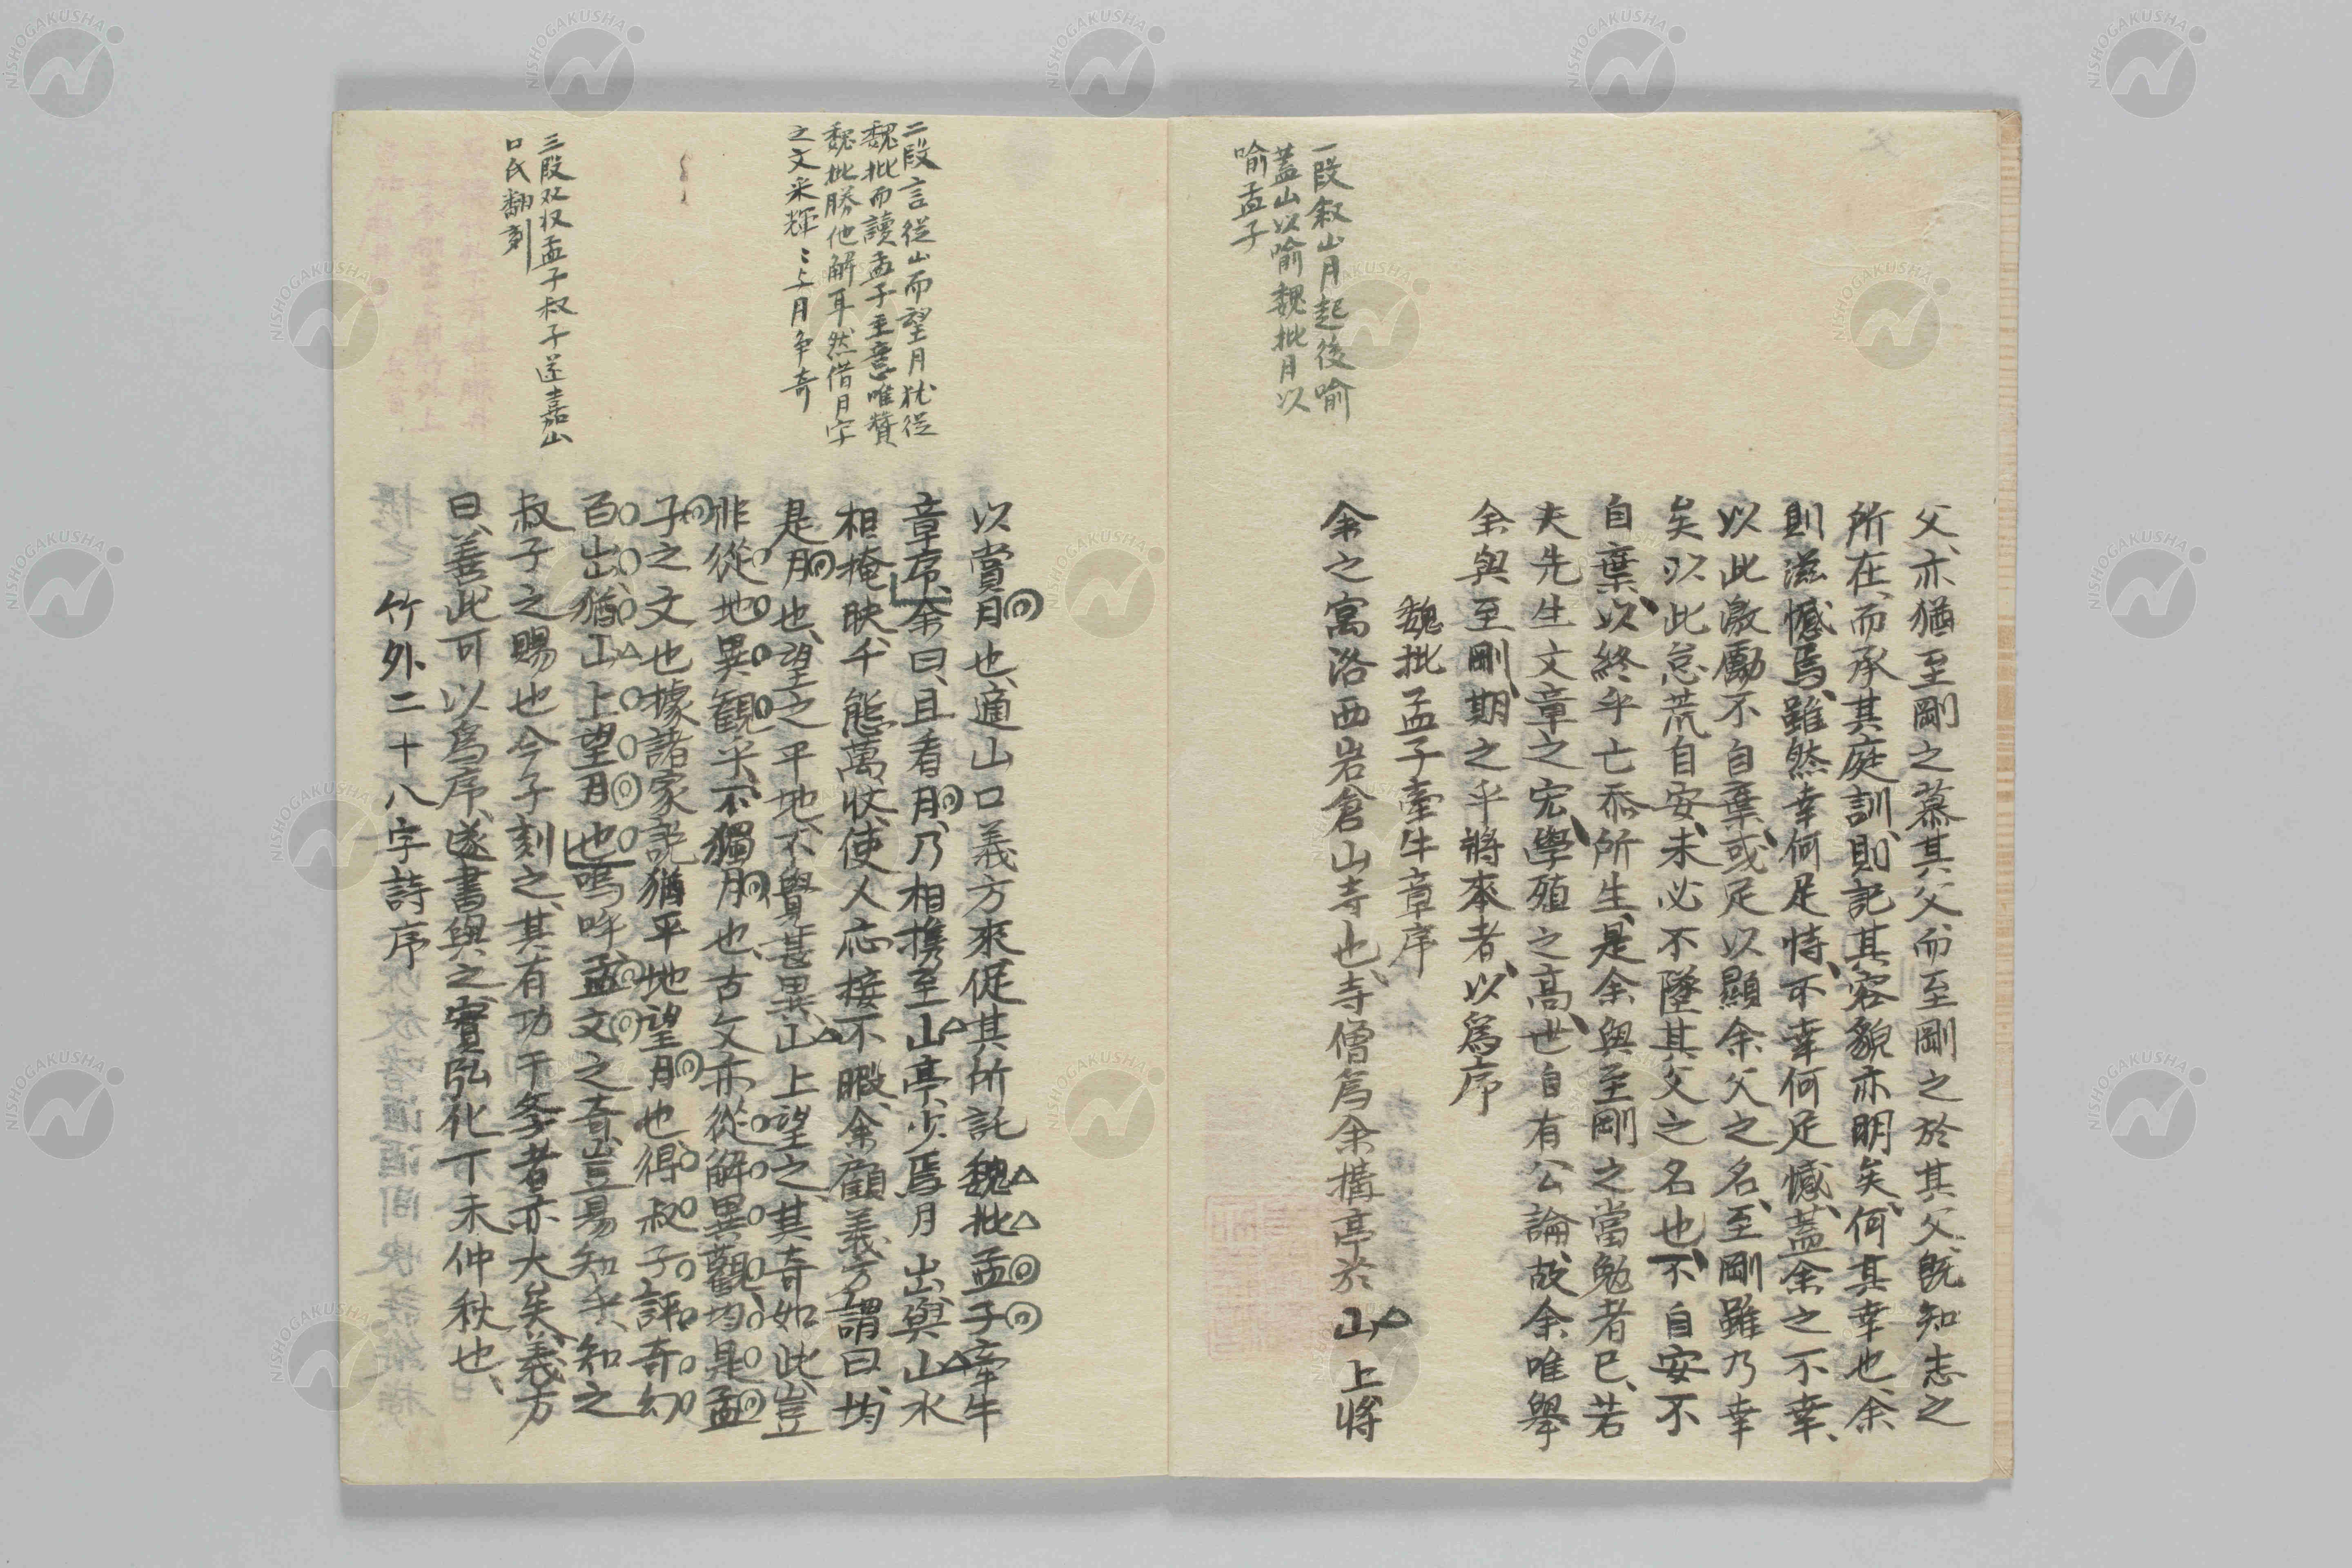 一段叙山月起後喩
蓋山以喻魏批月以
喻孟子
父、亦猶至剛之慕其父、而至剛之於其父、既知志之
所在、而承其庭訓、則記其容貌亦明矣、何其幸也、余
則滋憾焉、雖然幸何足恃、不幸何足憾、蓋余之不幸、
以此激勵不自棄、或足以顯余父之名、至剛雖乃幸
矣以此怠荒自安、未必不墜其父之名也、不自安不
自棄、以終乎亡忝所生、是余與至剛之當勉者已、若
夫先生文章之宏、學殖之高、世自有公論、故余唯舉
余與至剛、期之乎將來者、以爲序
魏批孟子牽牛章序
余之寓洛西岩倉山寺也、寺僧爲余搆亭於山上、將
二段言従山而望月犹従
魏批而讀孟子主意唯賛
魏批勝他解耳然借月字
之文采輝〻与月争奇
三段双収孟子叔子送嘉山
口氏翻刻
以賞月也、適山口義方來促其所託魏批孟子牽牛
章序、余曰、且看月、乃相携至山亭、少焉月出、與山水
相掩映、千態萬狀、使人応接不暇、余顧義方謂曰、均
是月也、望之平地、不覺甚異、山上望之、其奇如此、豈
非從地異觀乎、不獨月也、古文亦從解異觀、均是孟
子之文也據諸家說猶平地望月也、得叔子評奇幻
百出、猶山上望月也、嗚呼孟文之奇、豈易知乎、知之
叔子之賜也今子刻之、其有功于筝者亦大矣、義方
曰、善、此可以爲序、遂書與之、實弘化丁未仲秋也、
竹外二十八字詩序